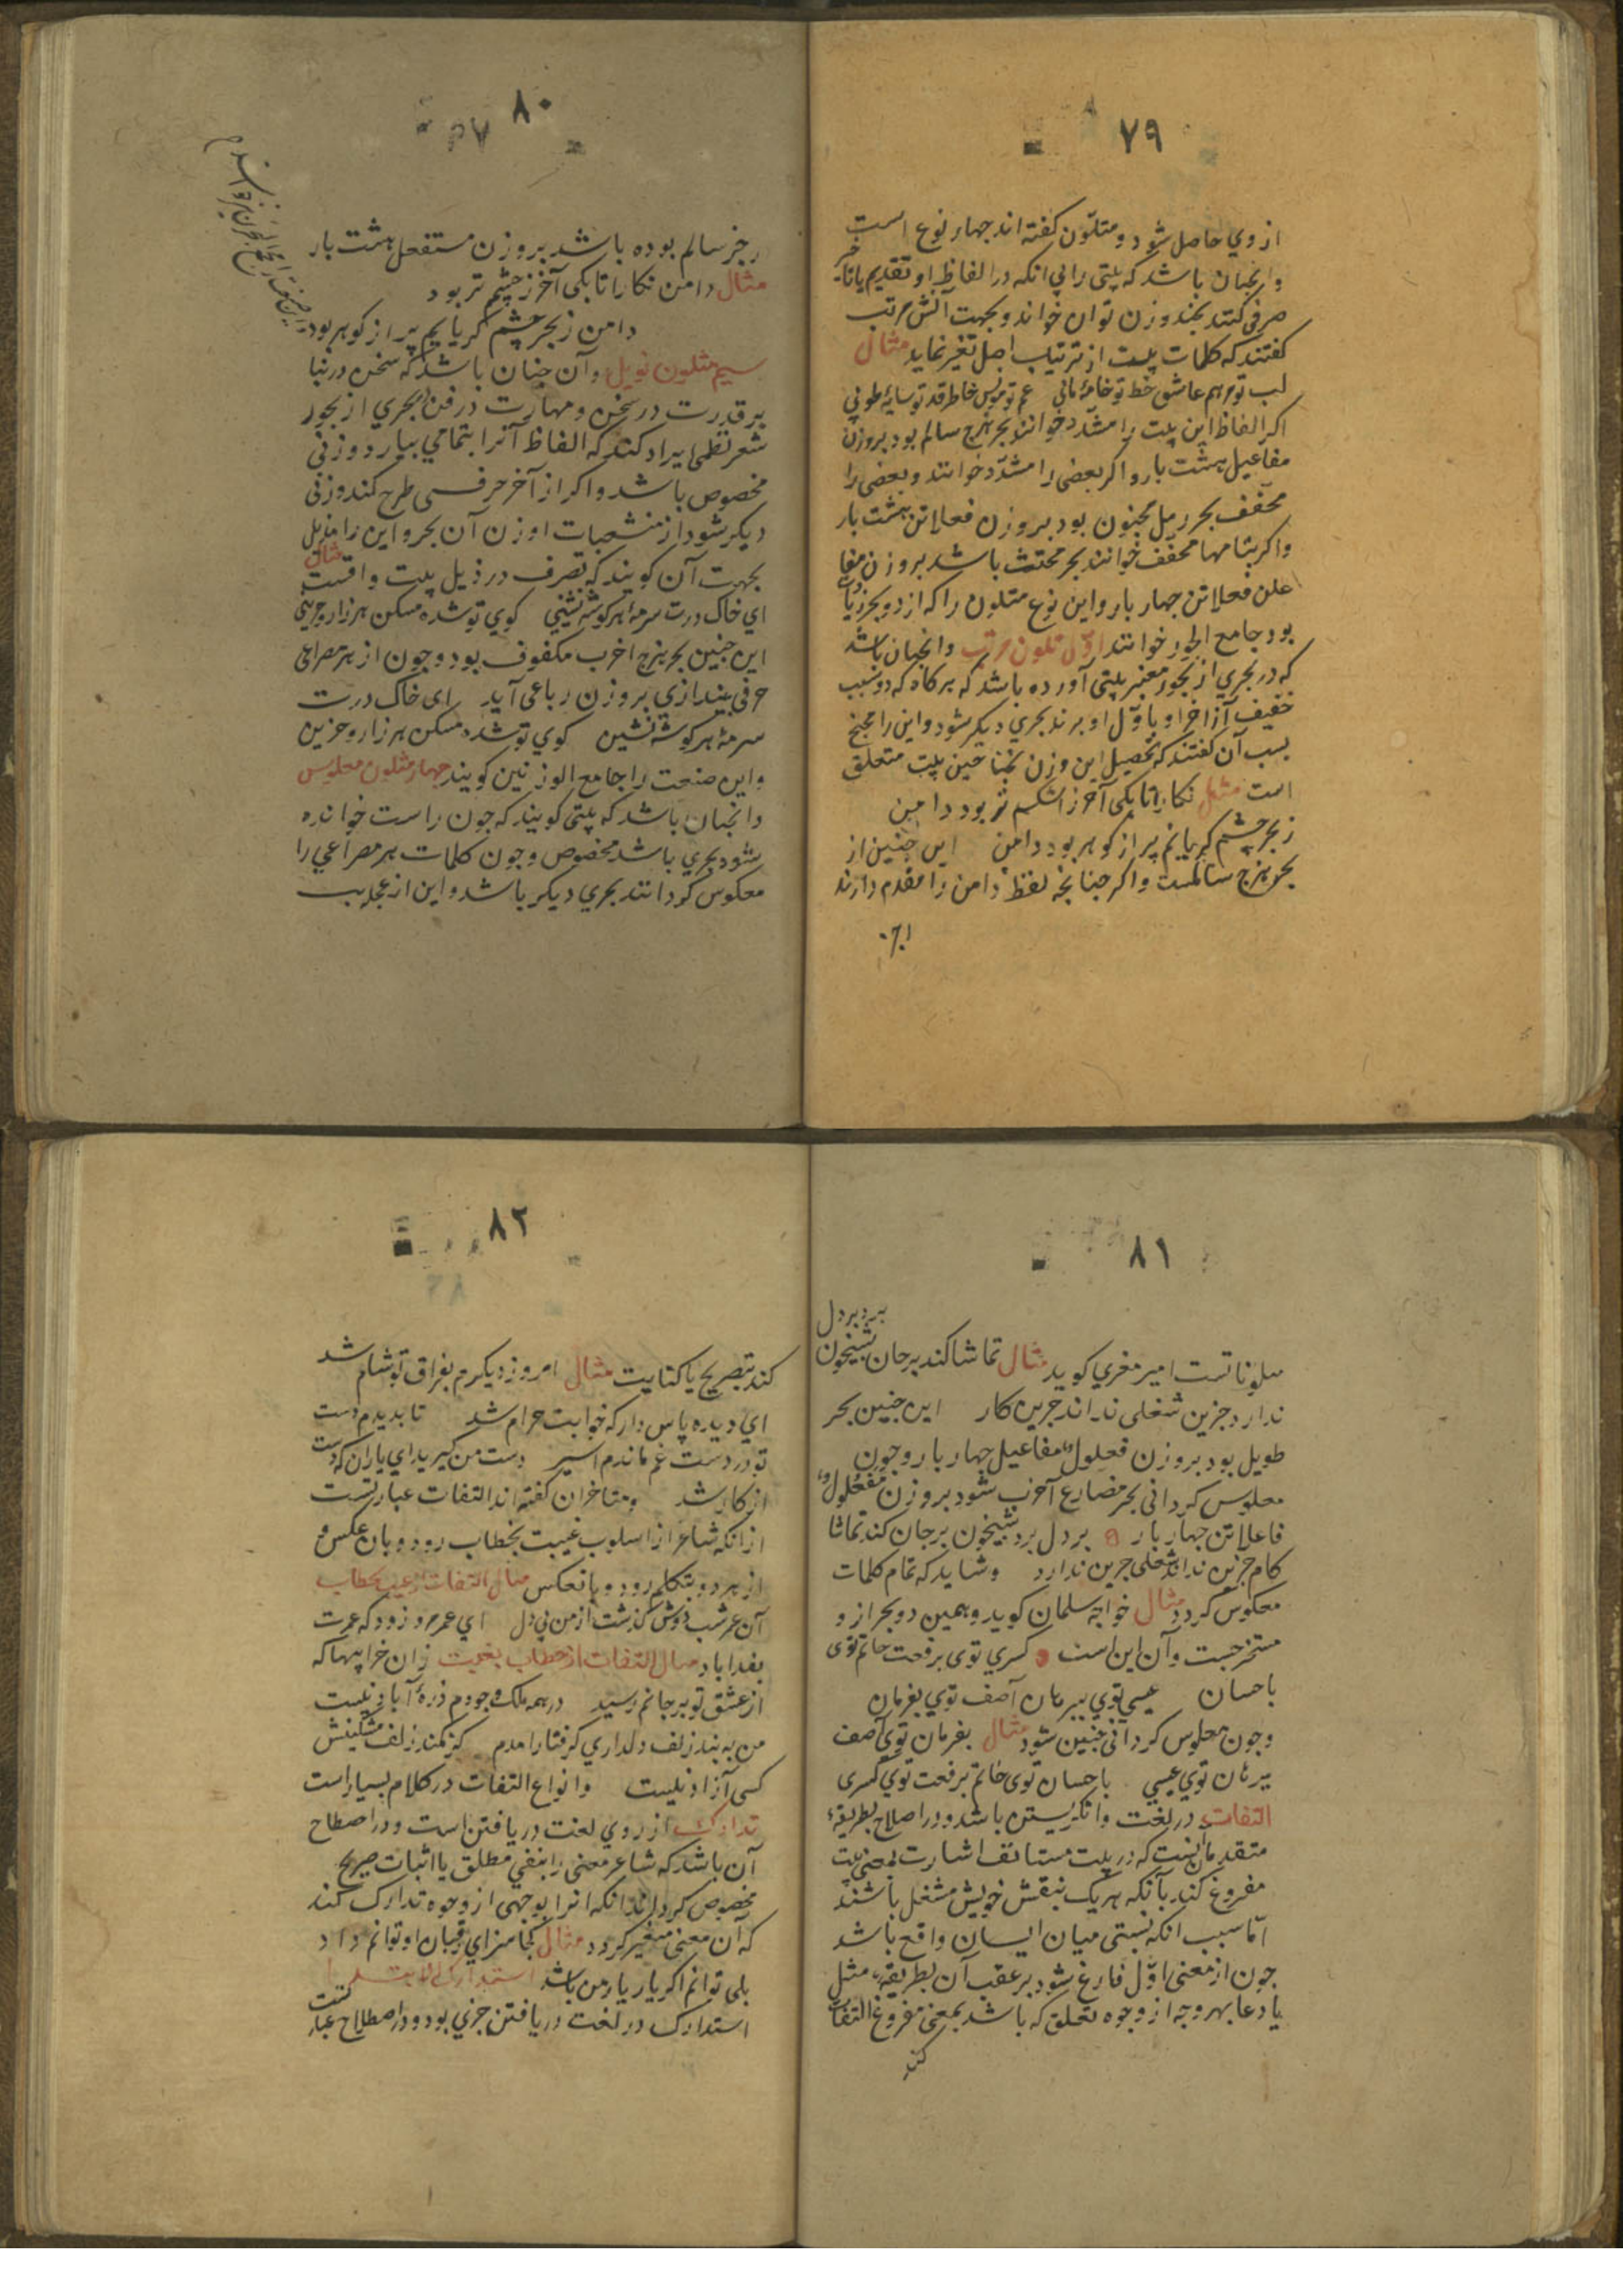 ۷۹
از وي حاصل شود و متلون گفته اند جهار نوع است
و انجنان باشد كه بيتى را بي انكه در الفاظ او تقديم يا تاخير
صرفى كنند بجند وزن توان خواند و بجهت آنش مرتب
كفتند كه كلمات بيت از ترتيب اصل تغير نمايد مثال
لب تو مرهم عاشق خط تو خامۀ مانى غم تو مونس خاطر قد تو سايۀ طوبي
اكر الفاظ اين بيت را مشدد خوانند بحر هزج سالم بود بروزن
مفاعيل هشت بار و اكر بعضى را مشدد خوانند و بعضى را
مخفف بحر رمل مخبون بود بروزن فعلاتن هشت بار
و اكر بتمامها مخفف خوانند بحر مجتث باشد بروزن مفا
علن فعلاتن جهار بار و اين نوع متلون را كه از دو بحر زيات
بود جامع البحور خوانند اول متلون مرتب و انجنان باشد
كه در بحرى از بحور معتبر بيتى آورده باشد كه هركاه كه دو سبب
خفيف از آخر او باول او برند بحرى ديكر شود و اين را مجنح
بسبب آن كفتند كه تحصيل اين وزن بجناحين بيت متعلق
است مثل نكارا تا بكى آخر ز اشكم تر بود دامن
ز بحر چشم كريانم پر از كوهر بود دامن اين چنين از
بحر هزج سالمست و اكر جنانجه لفظ دامن را مقدم دارند
۸۰
رجز سالم بوده باشد بروزن مستفعل هشت بار
مثال دامن نكارا تا بكى آخر ز چشم تر بود
دامن ز بحر چشم كريانم پر از كوهر بود
سيم متلون ذويل و آن چنان باشد كه سخن در بنا
بر قدرت در سخن و مهارت در فن بحرى از بحور
شعر نظمى ايراد كند كه الفاظ آنرا بتمامي بيارد وزنى
مخصوص باشد و اكر از آخر حرفى طرح كند وزنى
ديكر شود از منشعبات اوزان آن بحر و اين را مذيل
بجهت آن كويند كه تصرف در ذيل بيت واقست مثال
اي خاك درت سرمۀ هر كوشه نشيني كوي تو شده مسكن هر زار و حزيني
اين جنين بحر هزج اخرب مكفوف بود و چون از هر مصراعى
حرفى بيندازى بروزن رباعى آيد اى خاك درت
سرمۀ هر كوشه نشين كوي تو شده مسكن هر زار و حزين
و اين صنعت را جامع الوزنين كويند جهار متلون معكوس
و انجنان باشد كه بيتى كويند كه چون راست خوانده
شود بحرى باشد مخصوص و چون كلمات هر مصراعي را
معكوس كردانند بحرى ديكر باشد و اين از عجايب
۸۱
ببرد بر دل
ملوناتست امير معزي كويد مثال تماشا كند بر جان شبيخون
ندارد جزين شغلى نداند جزين كار اين جنين بحر
طويل بود بروزن فعلول مفاعيل جهار بار و چون
معكوس كردانى بحر مضارع اخرب شود بروزن مفعول
فاعلاتن جهار بار بر دل برد شبيخون بر جان كند تماشا
كار جزين نداند شغلى جزين ندارد و شايد كه تمام كلمات
معكوس كردد مثال خواجه سلمان كويد و همين دو بحر ازو
مستخرجست و آن اين است كسرى توى برفعت حاتم توى
باحسان عيسى توي ببرهان آصف توي بفرمان
و چون معكوس كردانى چنين شود مثال بفرمان توي آصف
ببرهان توي عيسي باحسان توى حاتم برفعت توي كسرى
التفات در لغت وا نكريستن باشد و در اصلاح بطريقۀ
متقدمان اينست كه در بيت مستانف اشارت بمعنى بيت
مفروغ كند بآنكه هر يك بنفس خويش مشغل باشند
اما سبب انكه نسبتى ميان ايشان واقع باشد
چون از معنى اول فارغ شود بر عقب آن بطريقۀ مثل
يا دعا بهر وجه از وجوه تعلق كه باشد بمعنى مفروغ التفات
كند
۸۲
كند بتصريح يا كنايت مثال امروز ديكرم بفراق تو شام شد
اي ديده پاس دار كه خوابت حرام شد تا بديدم دست
تو در دست غم ماندم اسير دست من كيريد اي ياران كه دست
از كار شد و متاخران كفته اند التفات عبارتست
از انكه شاعر از اسلوب غيبت بخطاب رود و بان عكس و
از هر دو بتكلم رود و بانعكس مثال التفات از غيبت بخطاب
آن عمر شب دوش كذشت از من بي دل اي عمر مرو زود كه عمرت
بفدا باد مثال التفات از خطاب بغيبت زان خرابيها كه
از عشق تو بر جانم رسيد در همه ملك وجودم ذرۀ آباد نيست
من به بند زلف دلداري كرفتار آمدم كز كمند زلف مشكينش
كسى آزاد نيست و انواع التفات در كلام بسيار است
تدارك از روي لغت دريافتن است و در اصطلاح
آن باشد كه شاعر معنى را بنفي مطلق يا اثبات صريح
مخصوص كرداند انكه انرا بوجهى از وجوه تدارك كند
كه آن معنى متغير كردد مثال كجا سزاي رقيبان او توانم داد
بلى توانم اكر يار يار من باشد استدراك
استدراك در لغت دريافتن چيزي بود و در اصطلاح عبارتست